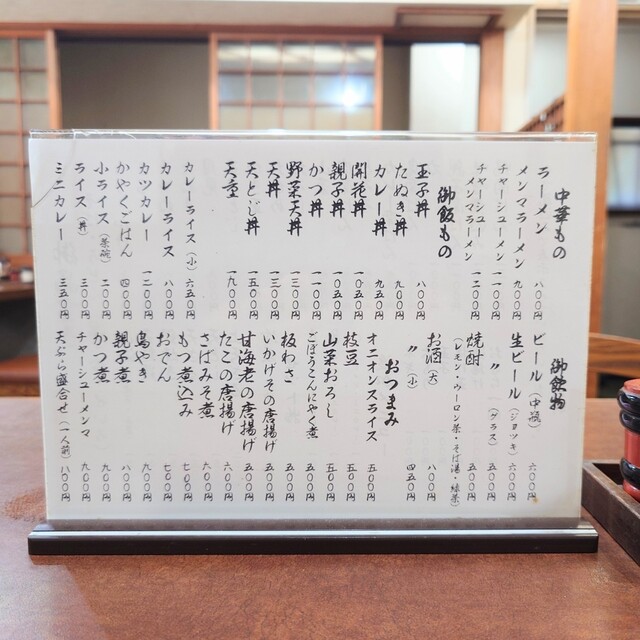 中華もの
ラーメン 八〇〇円
メンマラーメン 九〇〇円
チャーシューメン 一一〇〇円
チャーシューメンマラーメン 一二〇〇円
御飯もの
玉子丼 八〇〇円
たぬき丼 九〇〇円
カレー丼 九五〇円
開花丼 一〇五〇円
親子丼 一〇五〇円
かつ丼 一一〇〇円
野菜天丼 一三〇〇円
天丼 一三〇〇円
天とじ丼 一五〇〇円
天重 一九〇〇円
カレーライス(小) 六五〇円
カレーライス 八〇〇円
カツカレー 一二〇〇円
かやくごはん 四〇〇円
小ライス(茶碗) 二〇〇円
ライス(丼) 三〇〇円
ミニカレー 三五〇円
御飲物
ビール(中瓶) 六〇〇円
生ビール(ジョッキ) 六〇〇円
〃(グラス) 五〇〇円
焼酎 五〇〇円
(レモン・ウーロン茶・そば湯・緑茶)
お酒(大) 八〇〇円
〃(小) 四五〇円
おつまみ
オニオンスライス 五〇〇円
枝豆 五〇〇円
山菜おろし 五〇〇円
ごぼうこんにゃく煮 五〇〇円
板わさ 五〇〇円
いかげその唐揚げ 五〇〇円
甘海老の唐揚げ 五〇〇円
たこの唐揚げ 六〇〇円
さばみそ煮 六〇〇円
もつ煮込み 七〇〇円
おでん 七〇〇円
鳥やき 九〇〇円
親子煮 八〇〇円
かつ煮 九〇〇円
チャーシューメンマ 九〇〇円
天ぷら盛合せ(一人前) 八〇〇円